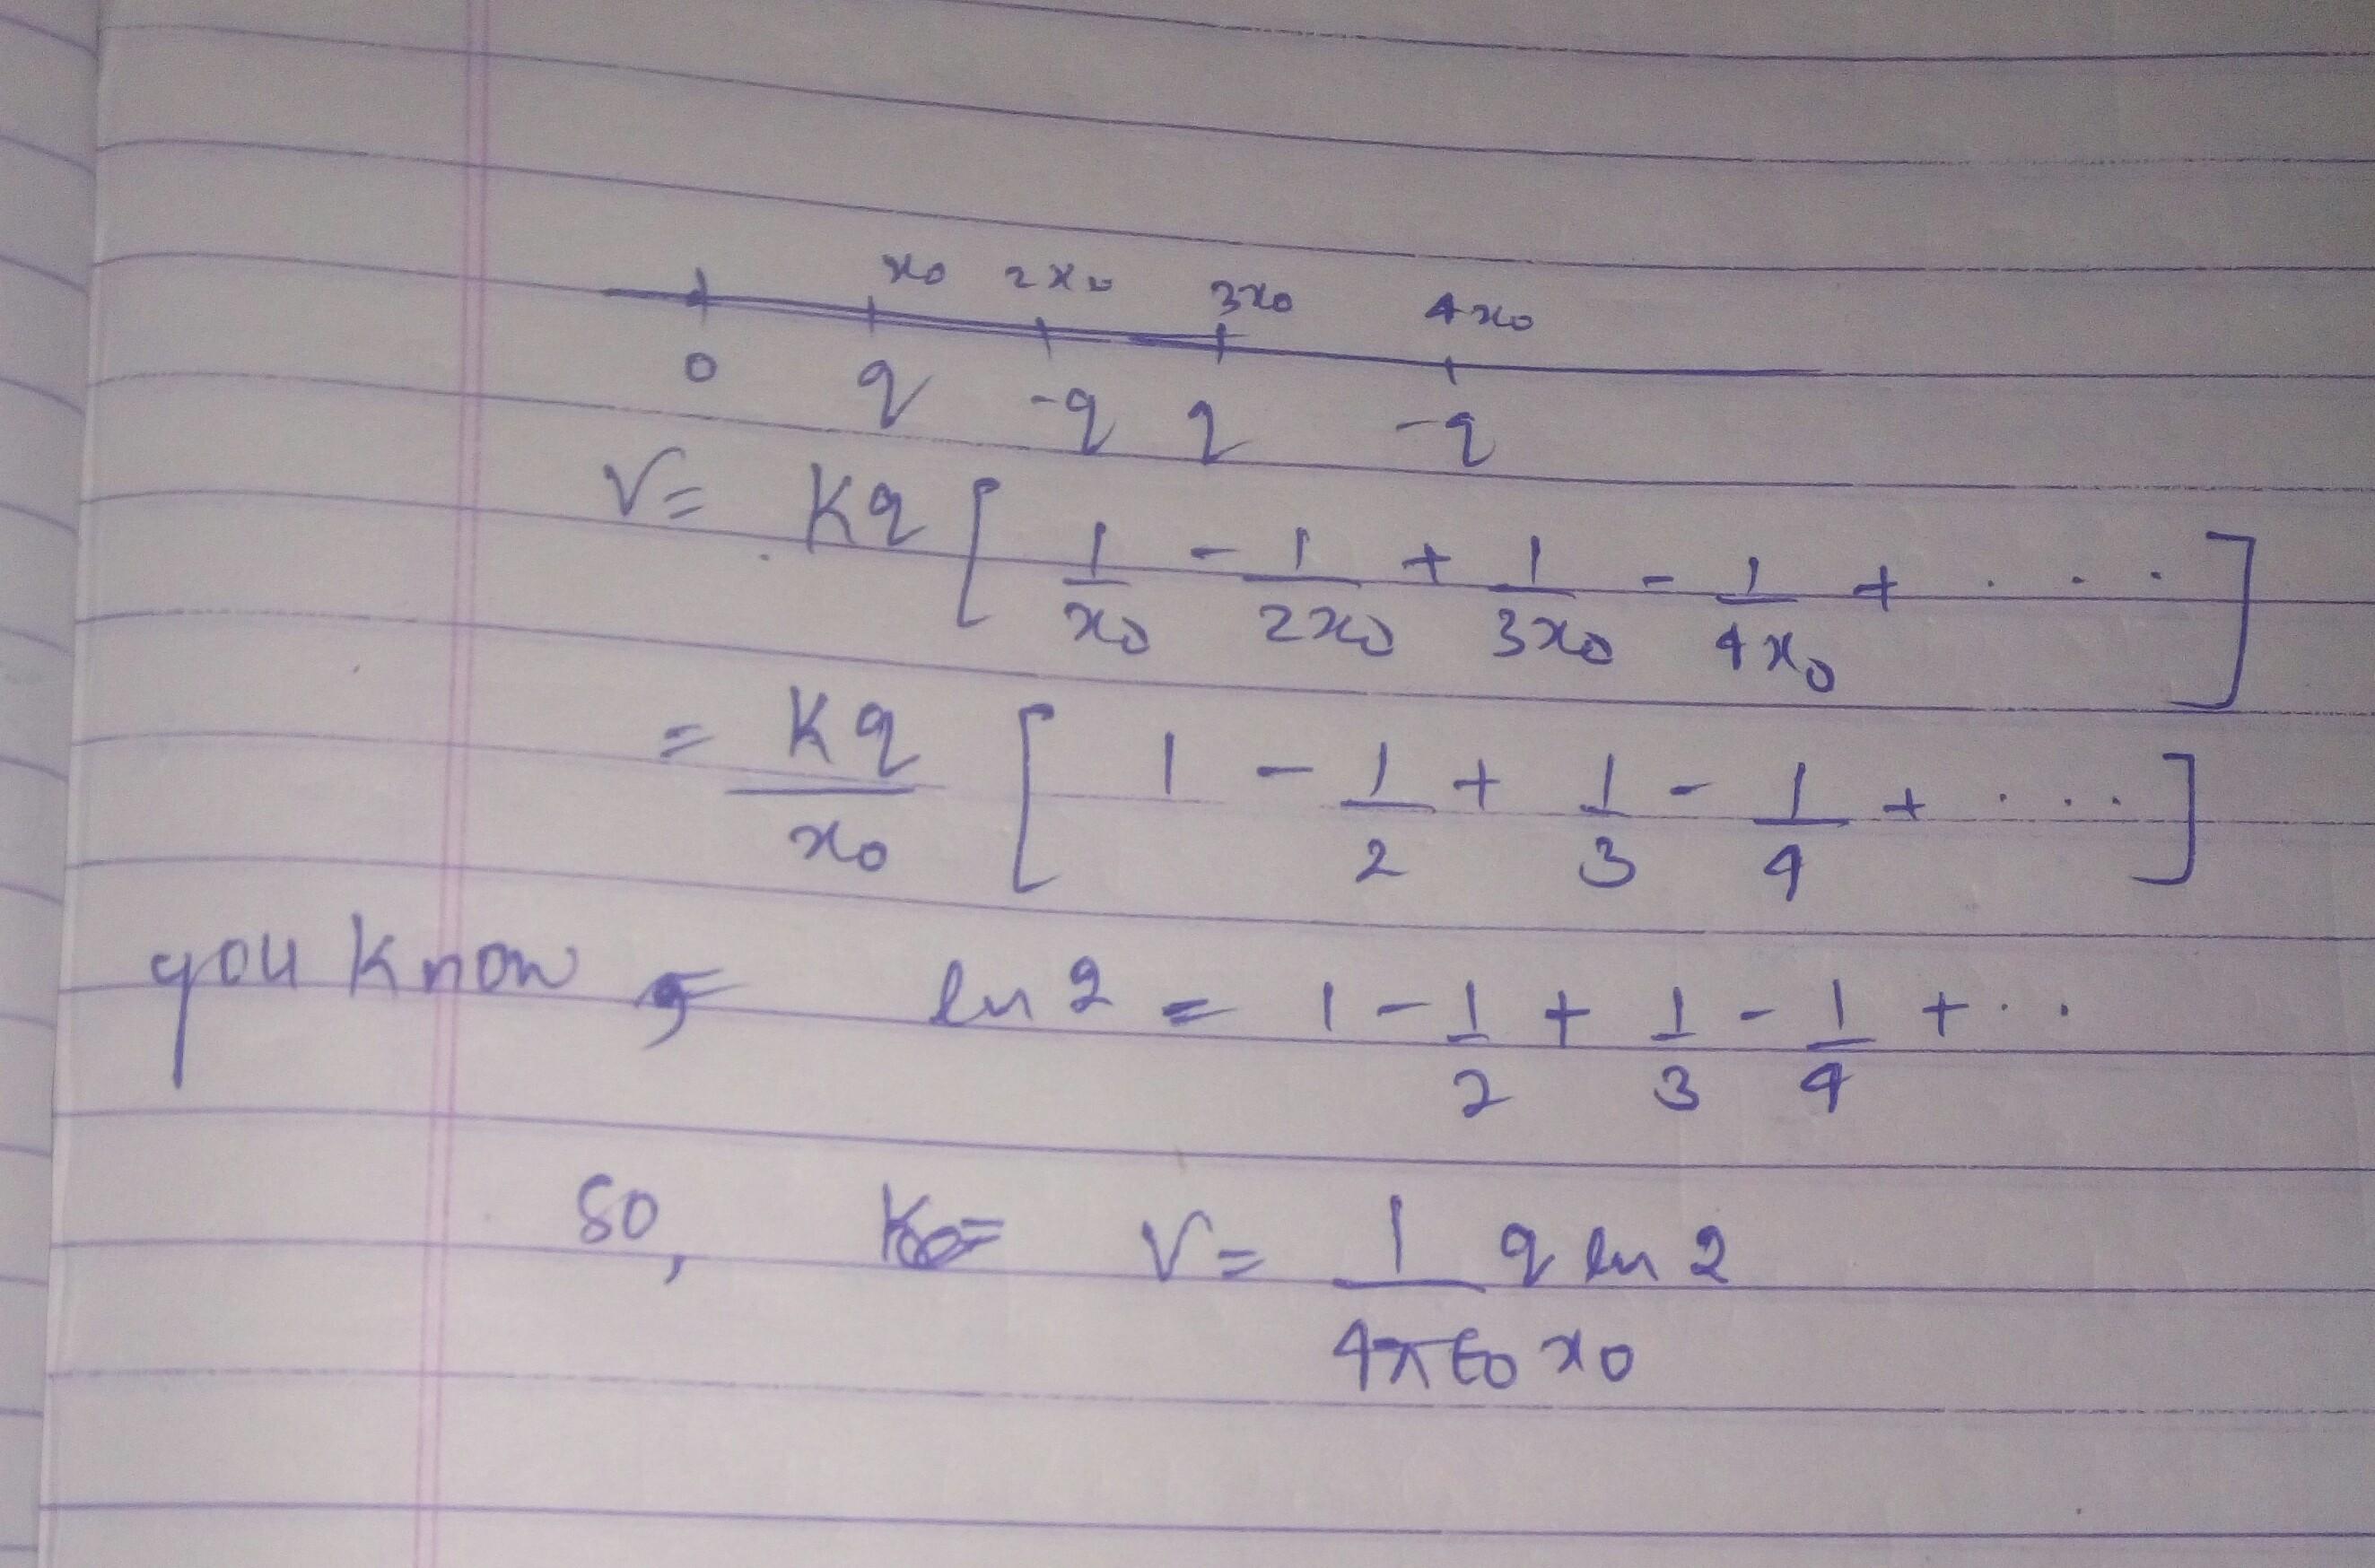 x₀ 2x₀ 3x₀ 4x₀
0 q -q q -q
V = Kq [ 1/x₀ - 1/2x₀ + 1/3x₀ - 1/4x₀ + . . . ]
= Kq/x₀ [ 1 - 1/2 + 1/3 - 1/4 + . . . ]
you know, ln 2 = 1 - 1/2 + 1/3 - 1/4 + . .
so, V = 1/4πϵ₀x₀ q ln 2